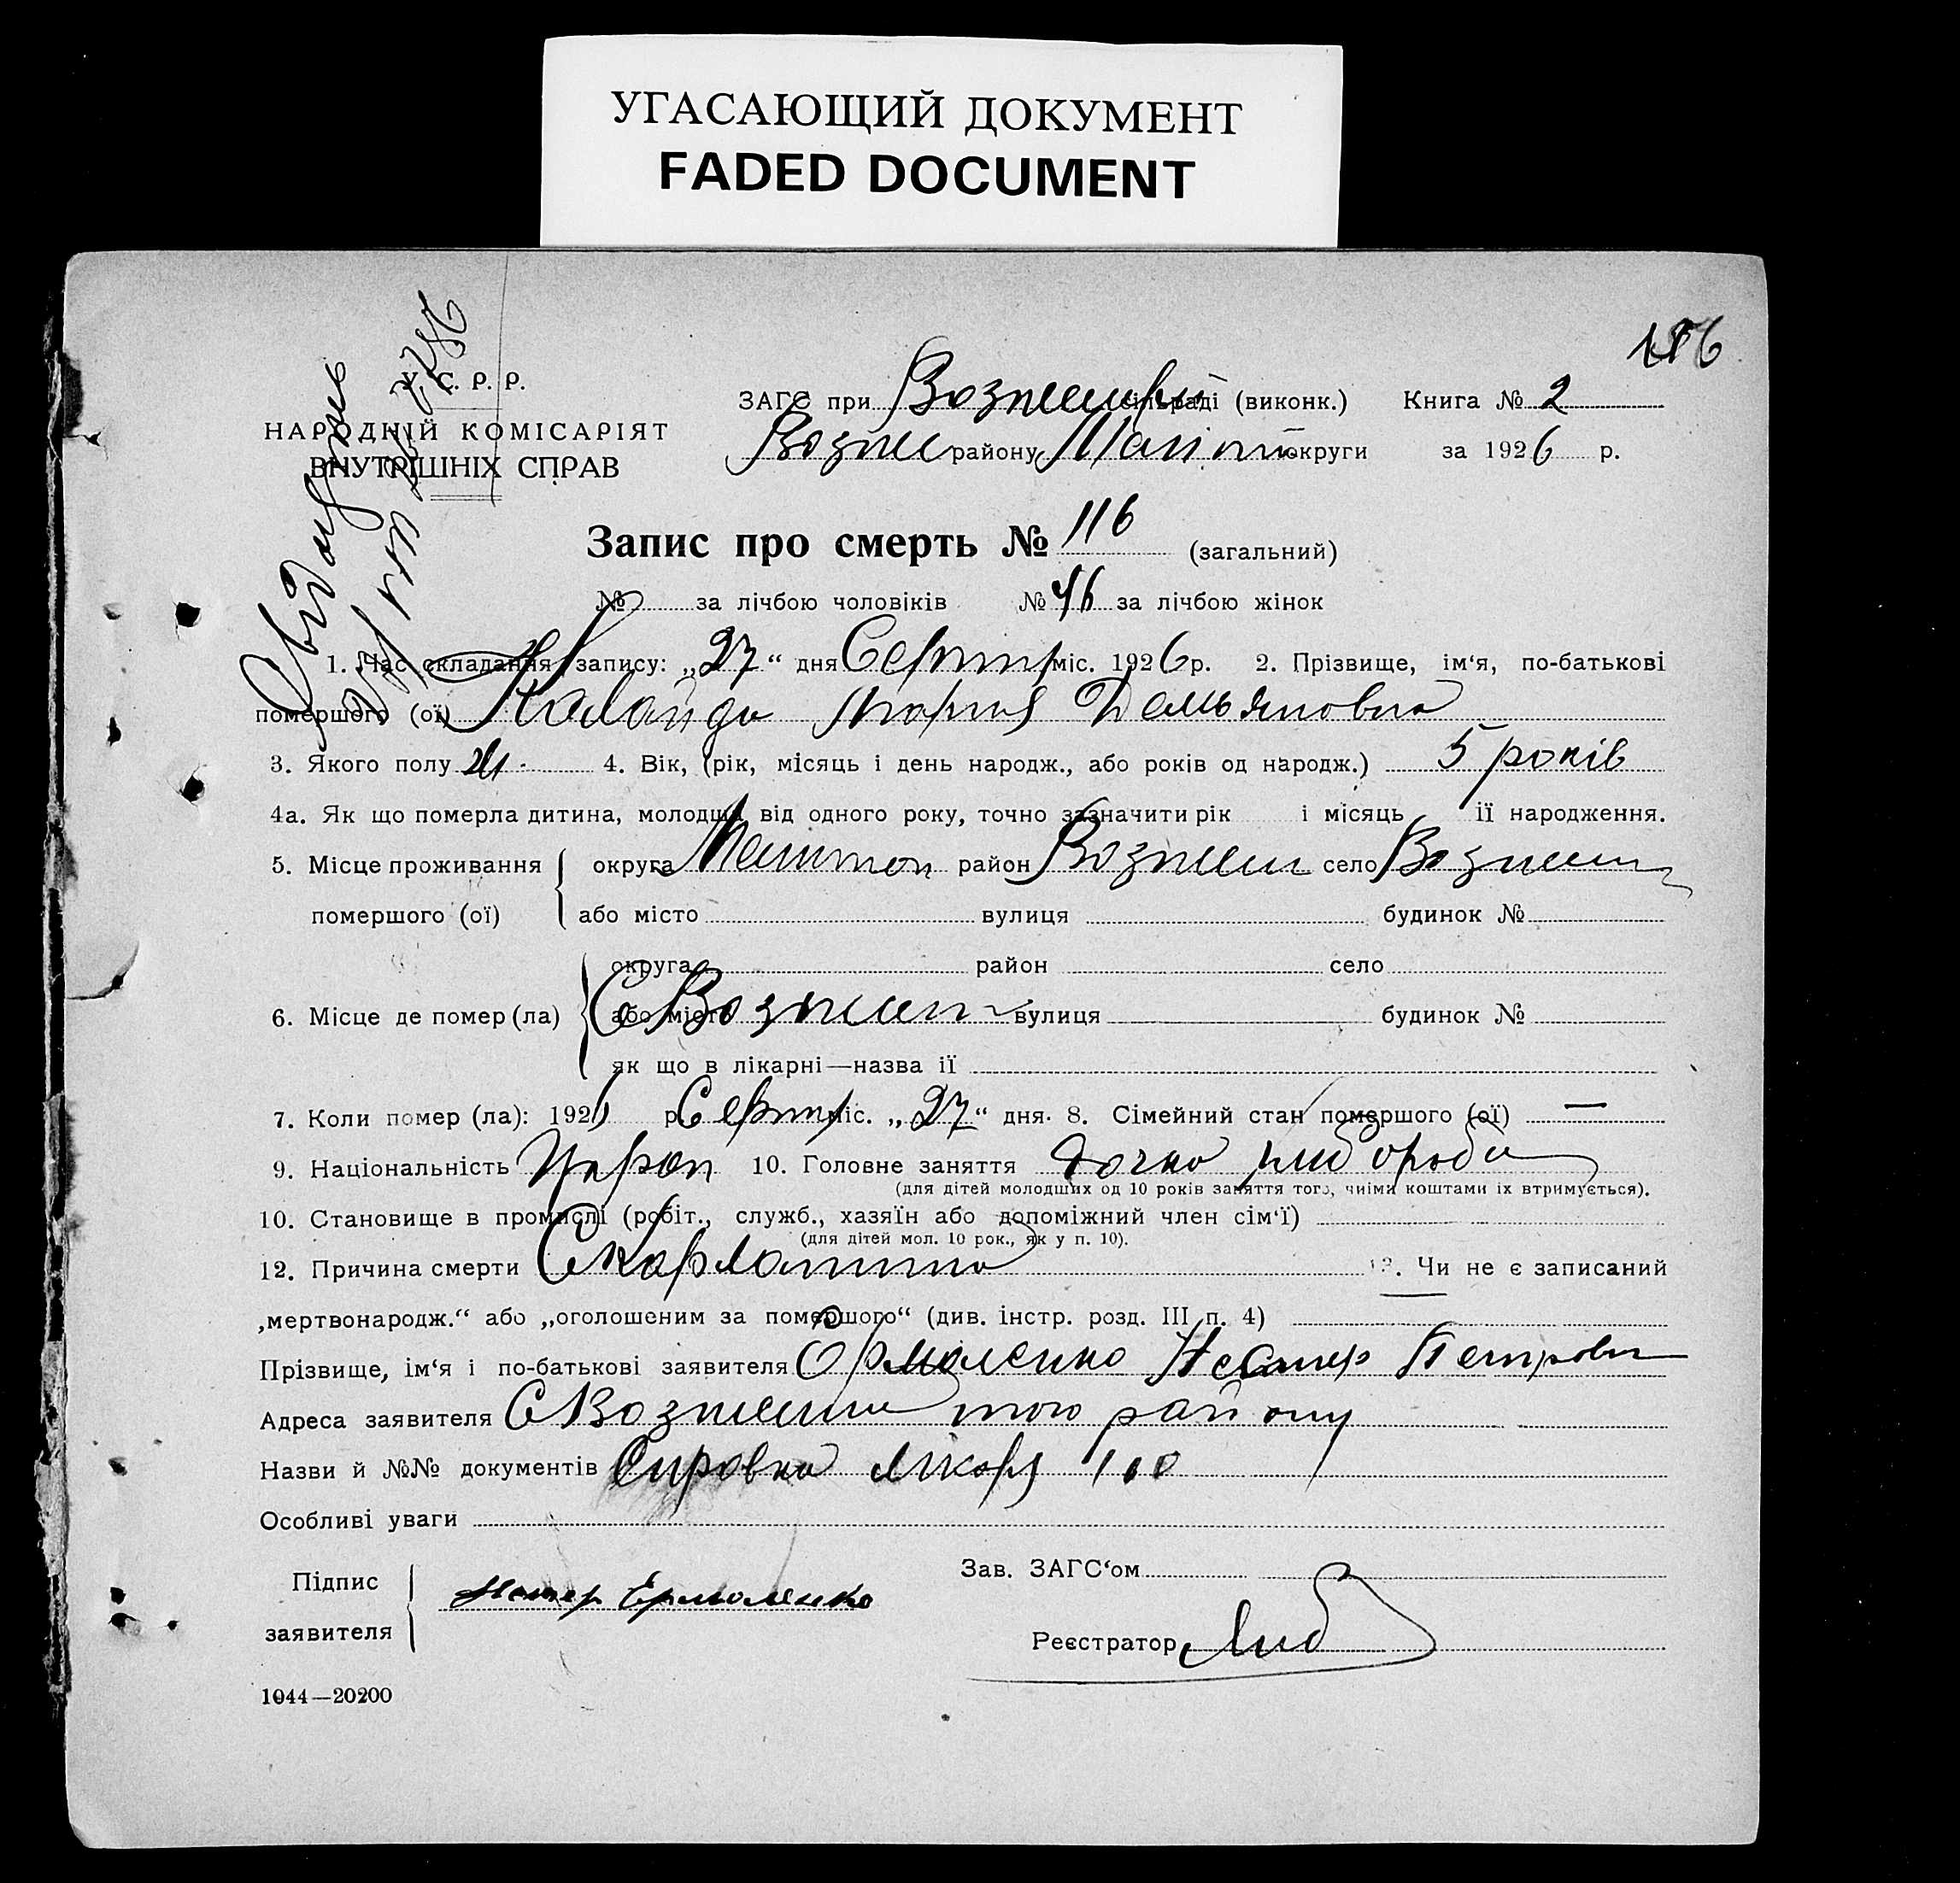 УГАСАЮЩИЙ ДОКУМЕНТ
FADED DOCUMENT
116
У. С. Р. Р.
НАРОДНІЙ КОМІСАРІЯТ
ВНУТРІШНІХ СПРАВ
ЗАГС при сільраді (виконк.) Книга № 2
Вознес району округи за 1926 р.
Запис про смерть № 116 (загальний)
№ за лічбою чоловіків № 46 за лічбою жінок
1. Час складання запису: „27“ дня Серпня міс. 1926 р. 2. Прізвище, ім‘я, по-батькові
помершого (ої) Каланда Мария Демьяновна
3. Якого полу 4. Вік, (рік, місяць і день народж., або років од народж.) 5 років
4а. Як що померла дитина, молодша від одного року, точно зазначити рік і місяць її народження.
5. Місце проживання округа район село
помершого (ої) або місто вулиця будинок №
округа район село
6. Місце де помер (ла) або місто вулиця будинок №
як що в лікарні—назва її
7. Коли помер (ла): 1926 р. Серпня міс. „27“ дня. 8. Сімейний стан помершого (ої) —
9. Національність 10. Головне заняття дочка хлібороба
(для дітей молодших од 10 років заняття того, чиїми коштами їх втримується).
10. Становище в промислі (робіт., служб., хазяїн або допоміжний член сім‘ї)
(для дітей мол. 10 рок., як у п. 10).
12. Причина смерти Скарлатина 13. Чи не є записаний
„мертвонародж.“ або „оголошеним за помершого“ (див. інстр. розд. III п. 4)
Прізвище, ім‘я і по-батькові заявителя Єрмоленко Нестер Петрович
Адреса заявителя С Вознесенка того району
Назви й №№ документів Справка лікаря
Особливі уваги
Підпис
заявителя Нестер Ермоленко
Зав. ЗАГС‘ом
Реєстратор
1044—20200